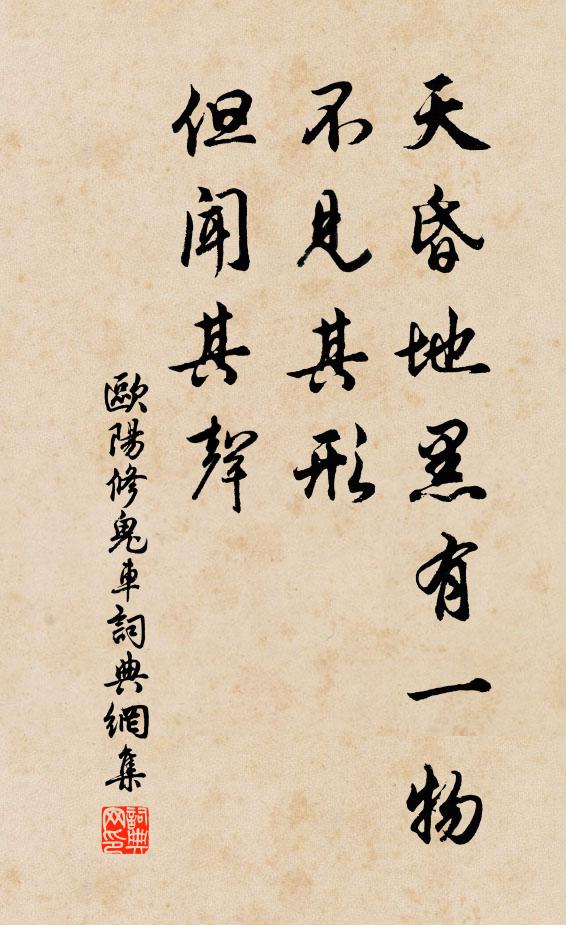 天昏地黑有一物
不見其形
但聞其聲
歐陽修鬼車詞典網集
詞典
网印